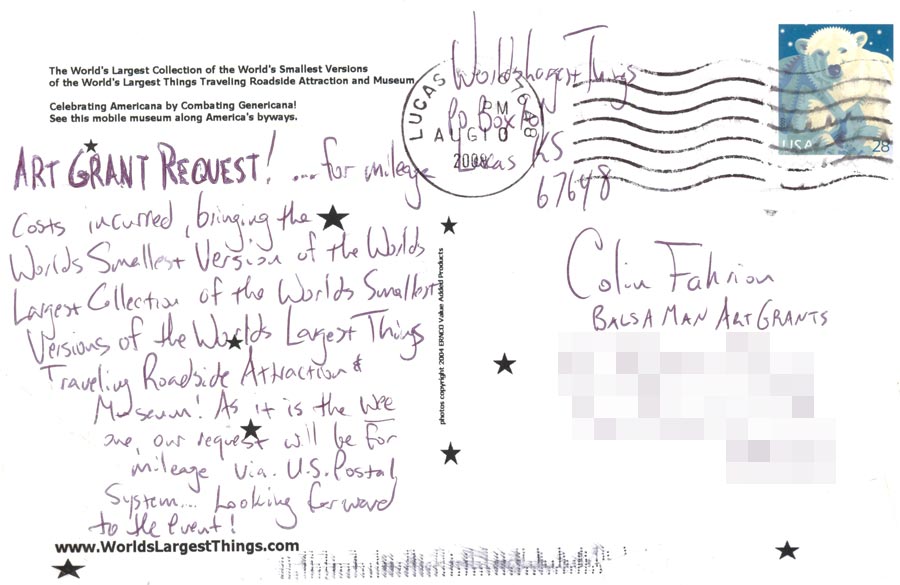 The World's Largest Collection of the World's Smallest Versions
of the World's Largest Things Traveling Roadside Attraction and Museum
Celebrating Americana by Combating Genericana!
See this mobile museum along America's byways.
Worlds Largest Things
Po Box
Lucas KS
67648
LUCAS
PM
AUG 10
2008
USA 28
ART GRANT REQUEST! ...for mileage
costs incurred, bringing the
Worlds Smallest Version of the Worlds
Largest Collection of the Worlds Smallest
Versions of the Worlds Largest Things
Traveling Roadside Attraction &
Museum! As it is the wee
one, our request will be for
mileage via U.S. Postal
System... Looking forward
to the event!
www.WorldsLargestThings.com
photos copyright 2004 ERNCO Value Added Products
Colin Fahrion
BALSA MAN ART GRANTS